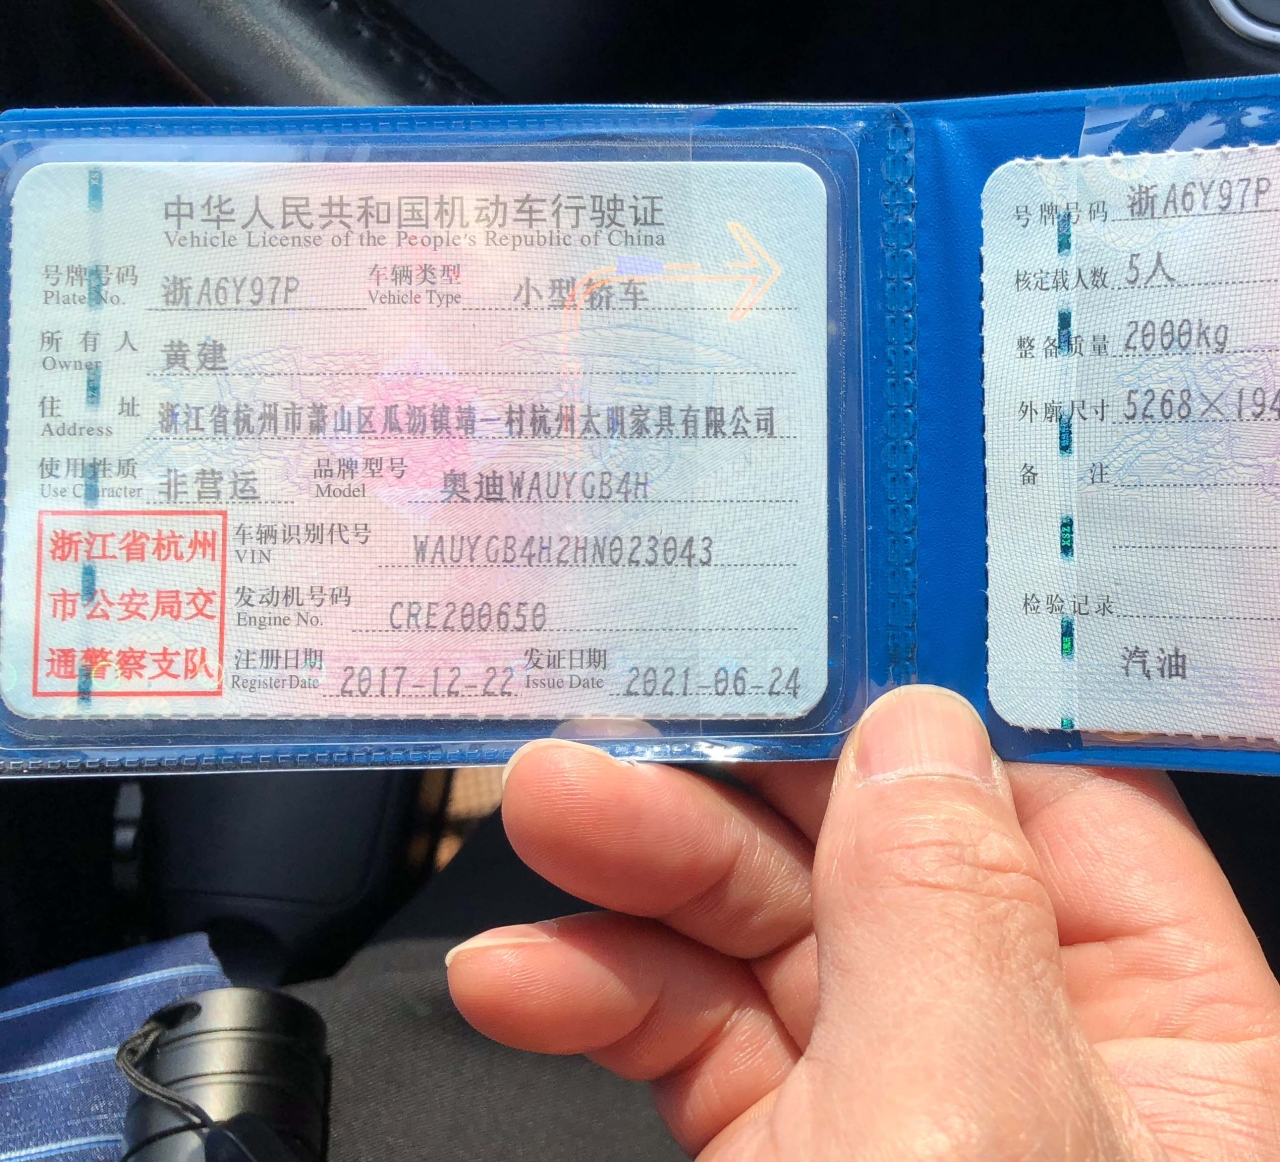 中华人民共和国机动车行驶证
Vehicle License of the People's Republic of China
号牌号码 浙A6Y97P 车辆类型 小型轿车
Plate No. Vehicle Type
所有人 黄建
Owner
住址 浙江省杭州市萧山区瓜沥镇靖一村杭州太明家具有限公司
Address
使用性质 非营运 品牌型号 奥迪WAUYGB4H
Use Character Model
浙江省杭州
市公安局交
通警察支队
车辆识别代号 WAUYGB4H2HN023043
VIN
发动机号码 CRE200650
Engine No.
注册日期 2017-12-22 发证日期 2021-06-24
Register Date Issue Date
号牌号码 浙A6Y97P
核定载人数 5人
整备质量 2000kg
外廓尺寸 5268×194
备注
检验记录
汽油